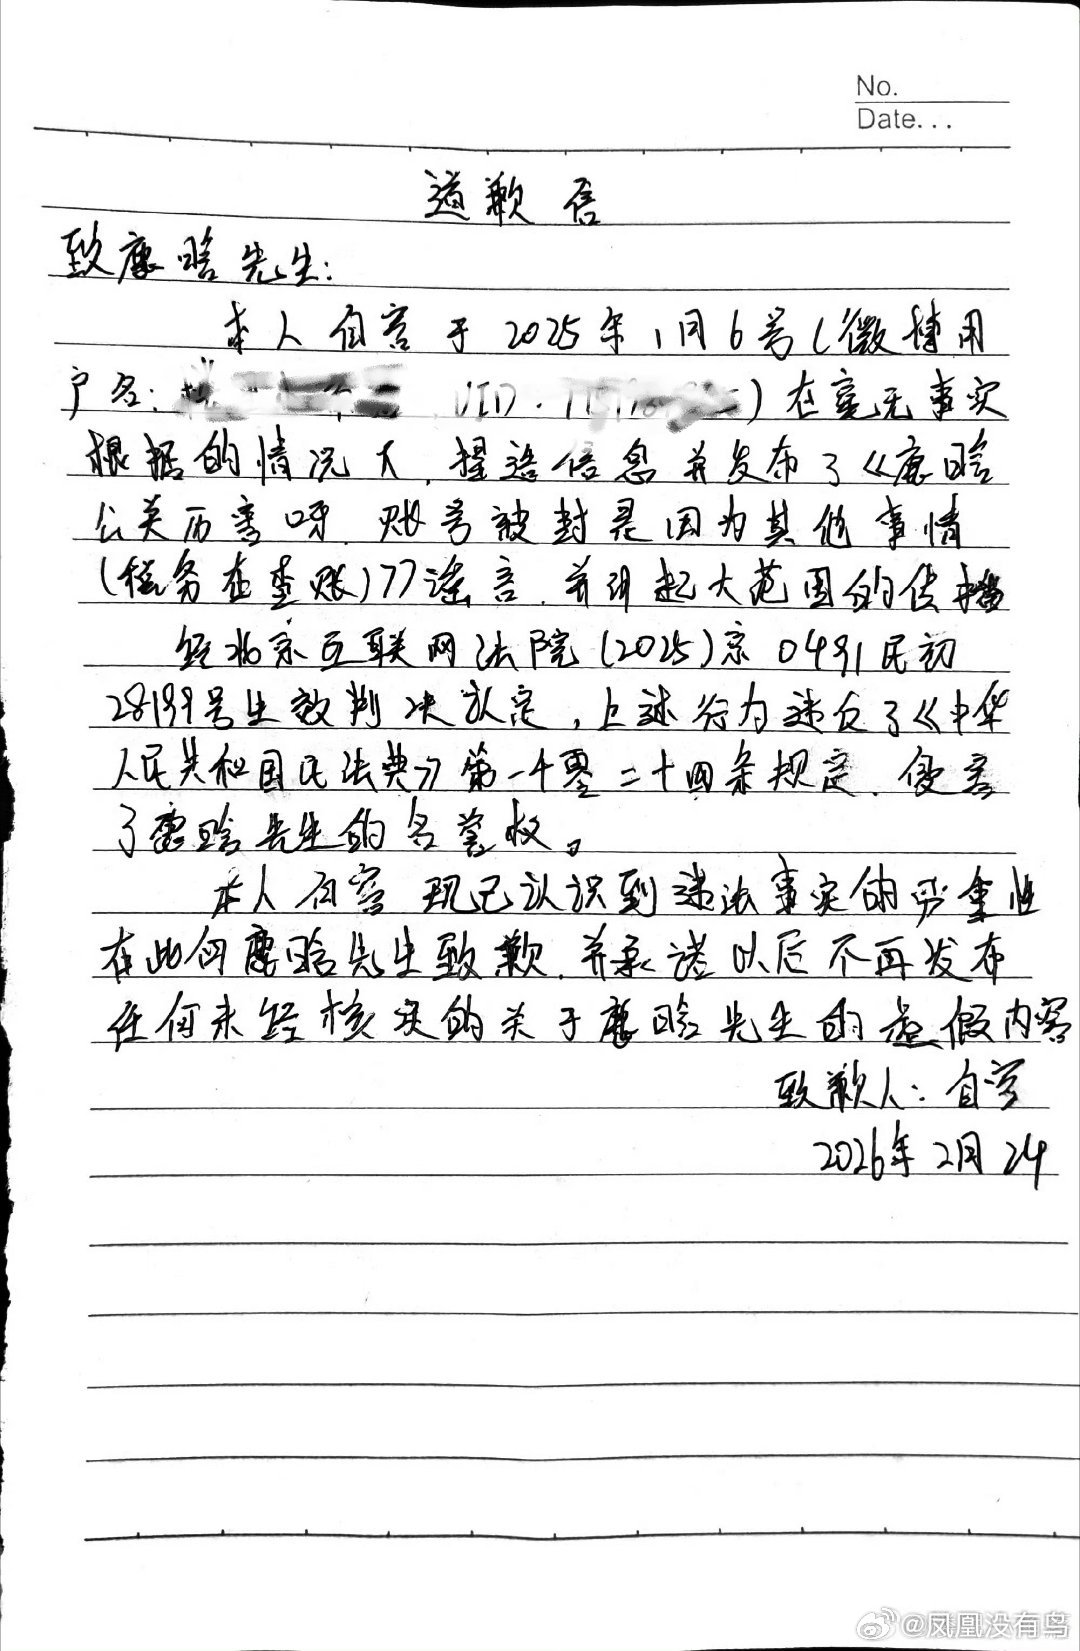 No.
Date...
道歉信
致鹿晗先生:
本人自容于2025年1月6号(微博用
户名: ,UID. )在毫无事实
根据的情况下,捏造信息并发布了《鹿晗
公关历害呀.账号被封是因为其他事情
(税务在查账)》谣言.并引起大范围的传播
经北京互联网法院(2025)京0491民初
28199号生效判决认定,上述行为违反了《中华
人民共和国民法典》第一千零二十四条规定.侵害
了鹿晗先生的名誉权。
本人自容现已认识到违法事实的严重性
在此向鹿晗先生致歉.并承诺以后不再发布
任何未经核实的关于鹿晗先生的虚假内容
致歉人:自容
2026年2月24
@凤凰没有鸟